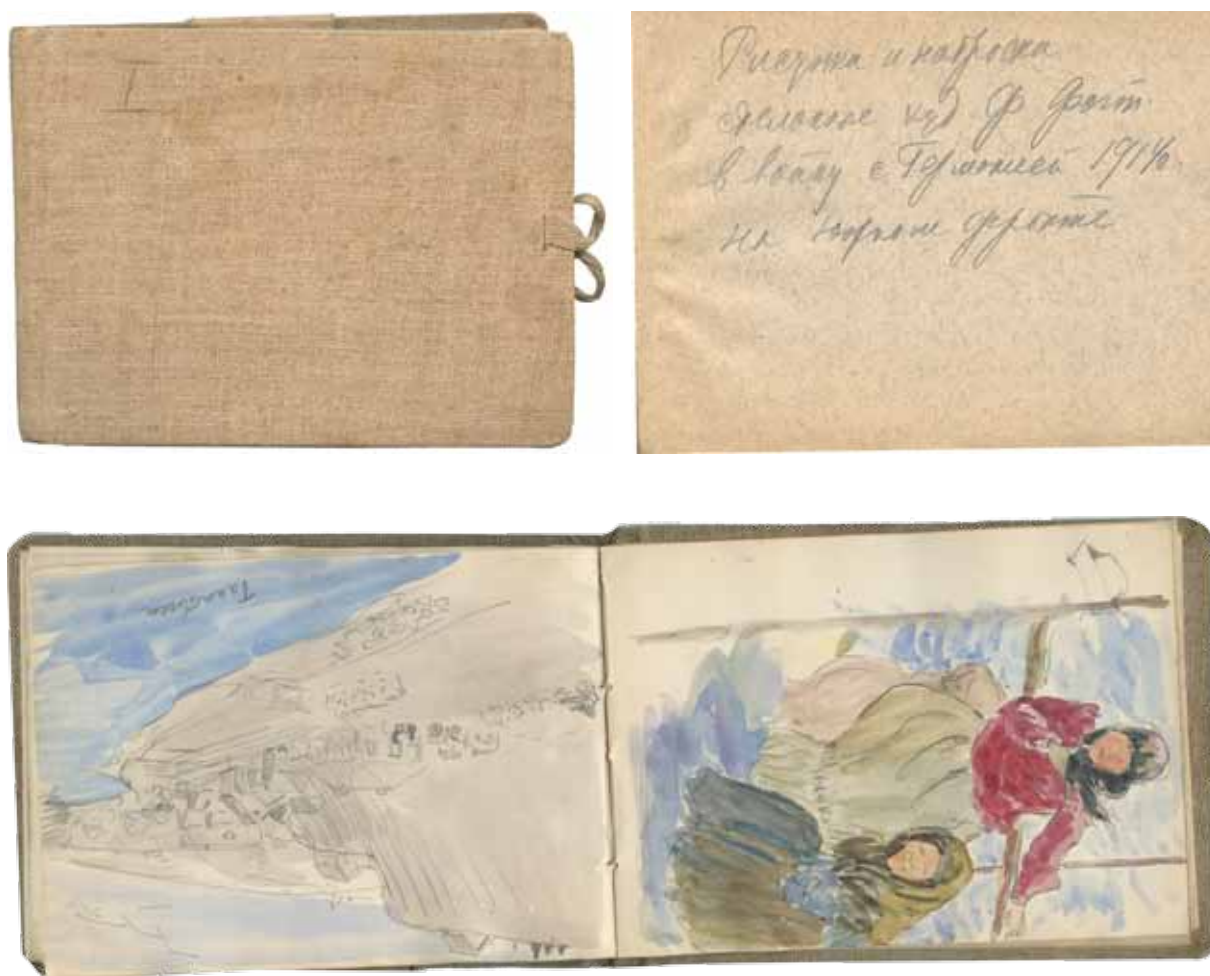 I
Рисунки и наброски
сделанные худ Ф Фогт
в войну с Германией 1914г.
на южном фронте